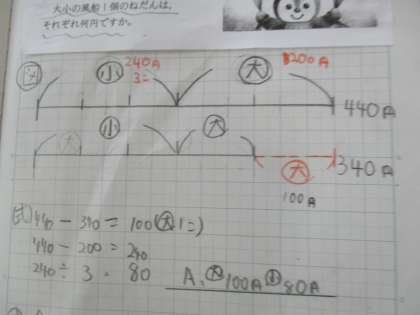 大小の風船1個のねだんは、
それぞれ何円ですか。
図 小 240円 3こ 大 200円
440円
大 小 大
340円
大
100円
式 440 - 340 = 100(大1こ)
440 - 200 = 240
240 ÷ 3 = 80
A、大100円 小80円